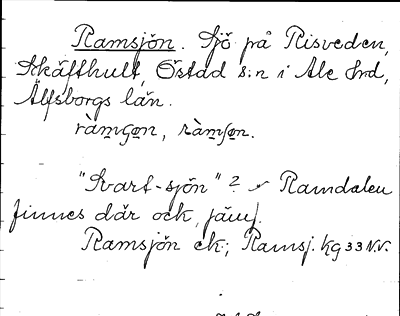 Ramsjön. Sjö på Risveden,
Skäfthult, Östad s:n i Ale hrd,
Älfsborgs län.
ràmʃo̱n, ràmʃo̱n.
"Svart-sjön"? Ramdalen
finnes där ock, jämf.
Ramsjön ek; Ramsj. kg 33 N.V.